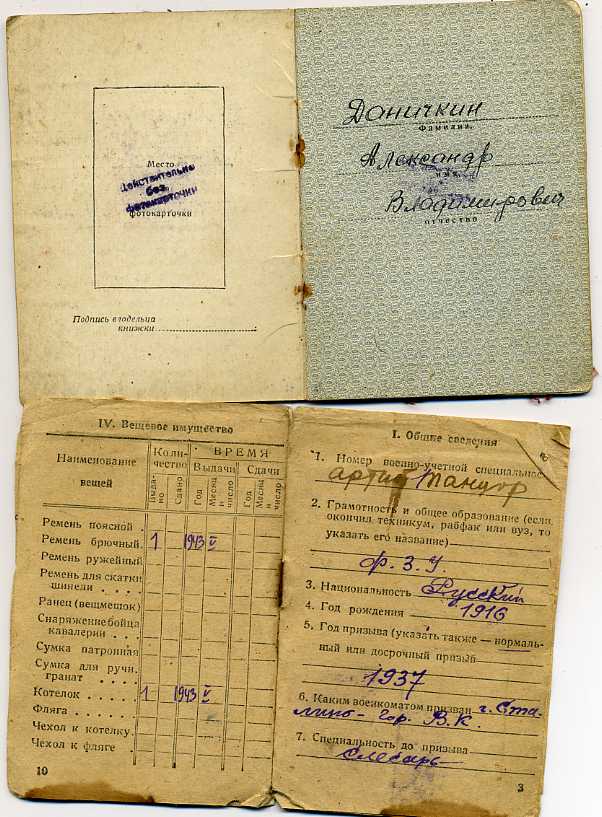 Место
Действительно
без
фотокарточки
фотокарточки
Подпись владельца
книжки
Даничкин
Фамилия,
Александр
имя,
Владимирович
отчество
IV. Вещевое имущество
Наименование
вещей
Коли-
чество
ВРЕМЯ
Выдачи
Сдачи
Выда-
но
Сдано
Год
Месяц
и
число
Год
Месяц
и
число
Ремень поясной
Ремень брючный 1 1943 V
Ремень ружейный
Ремень для скатки
шинели
Ранец (вещмешок)
Снаряжение бойца
кавалерии
Сумка патронная
Сумка для ручн.
гранат
Котелок 1 1943 V
Фляга
Чехол к котелку
Чехол к фляге
10
I. Общие сведения
1. Номер военно-учетной специальнос
артист танцор
2. Грамотность и общее образование (если
окончил техникум, рабфак или вуз, то
указать его название)
Ф.З.У.
3. Национальность Русский
4. Год рождения 1916
5. Год призыва (указать также — нормаль-
ный или досрочный призыв
1937
6. Каким военкоматом призван г. Ста-
лино- гор. В.К.
7. Специальность до призыва
слесарь
3